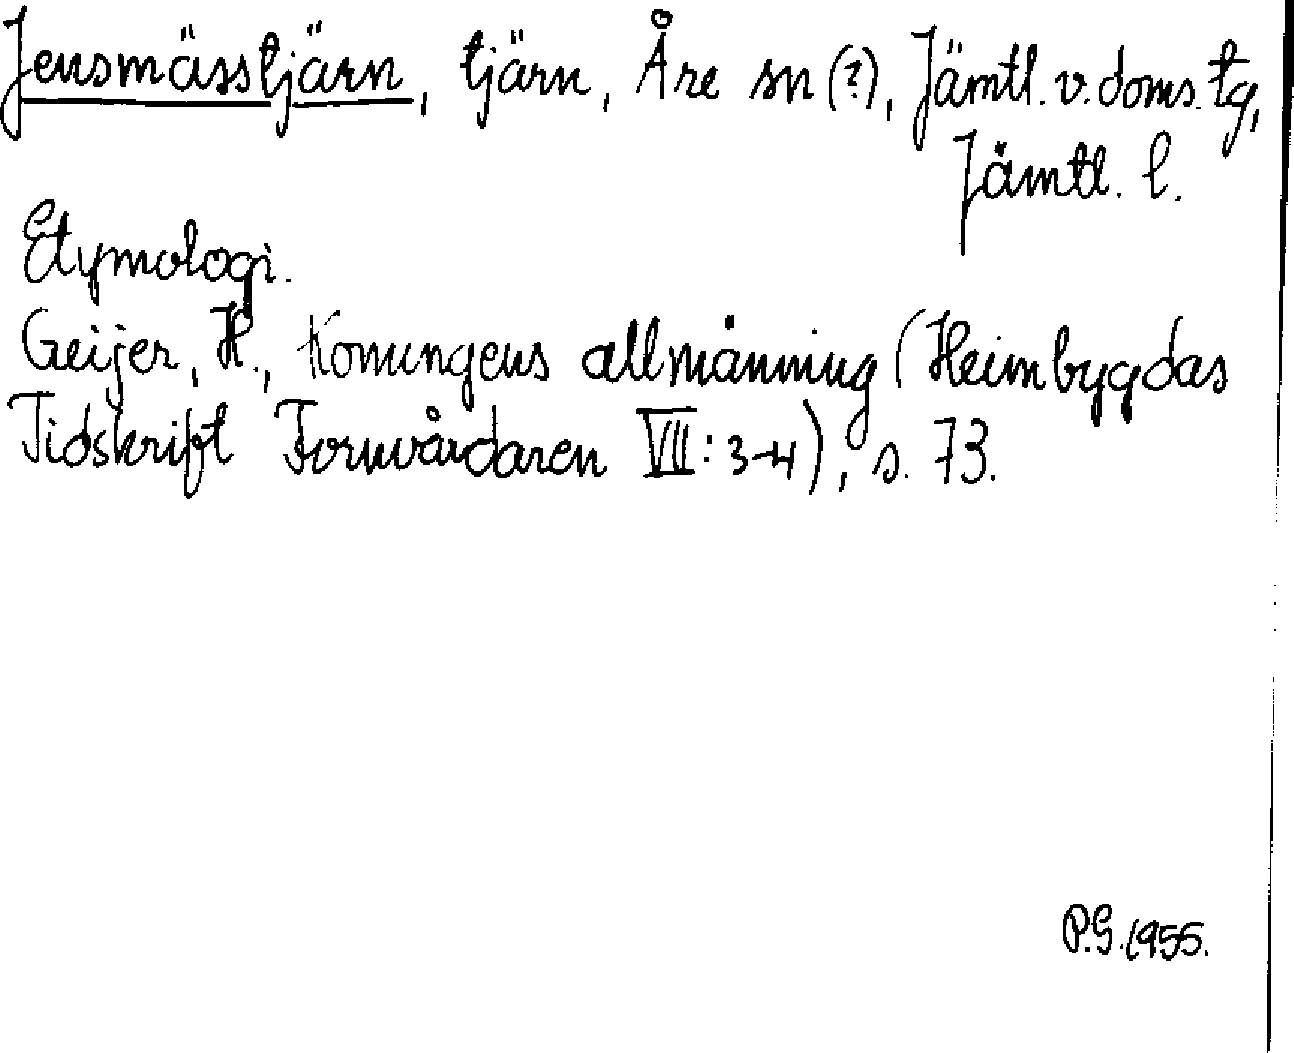 Jensmässtjärn, tjärn, Åre sn (?), Jämtl. v. doms. tg,
Jämtl. l.
Etymologi.
Geijer, H., Konungens allmänning (Heimbygdas
Tidskrift Fornvårdaren VII: 3-4), s. 73.
P.G. 1955.